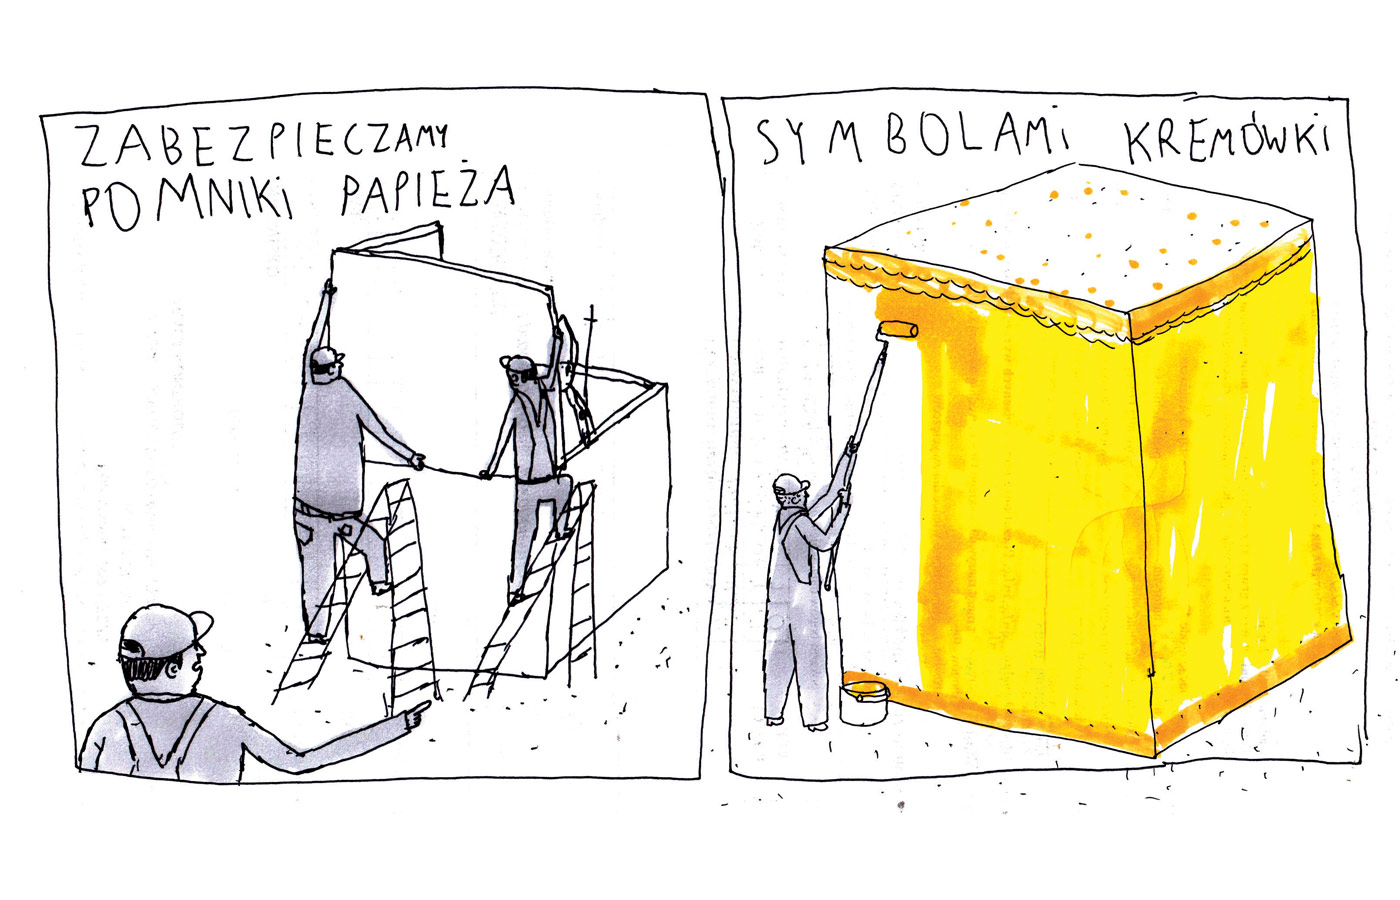 ZABEZPIECZAMY
POMNIKi PAPIEŻA
SYMBOLAMi KREMÓWKi